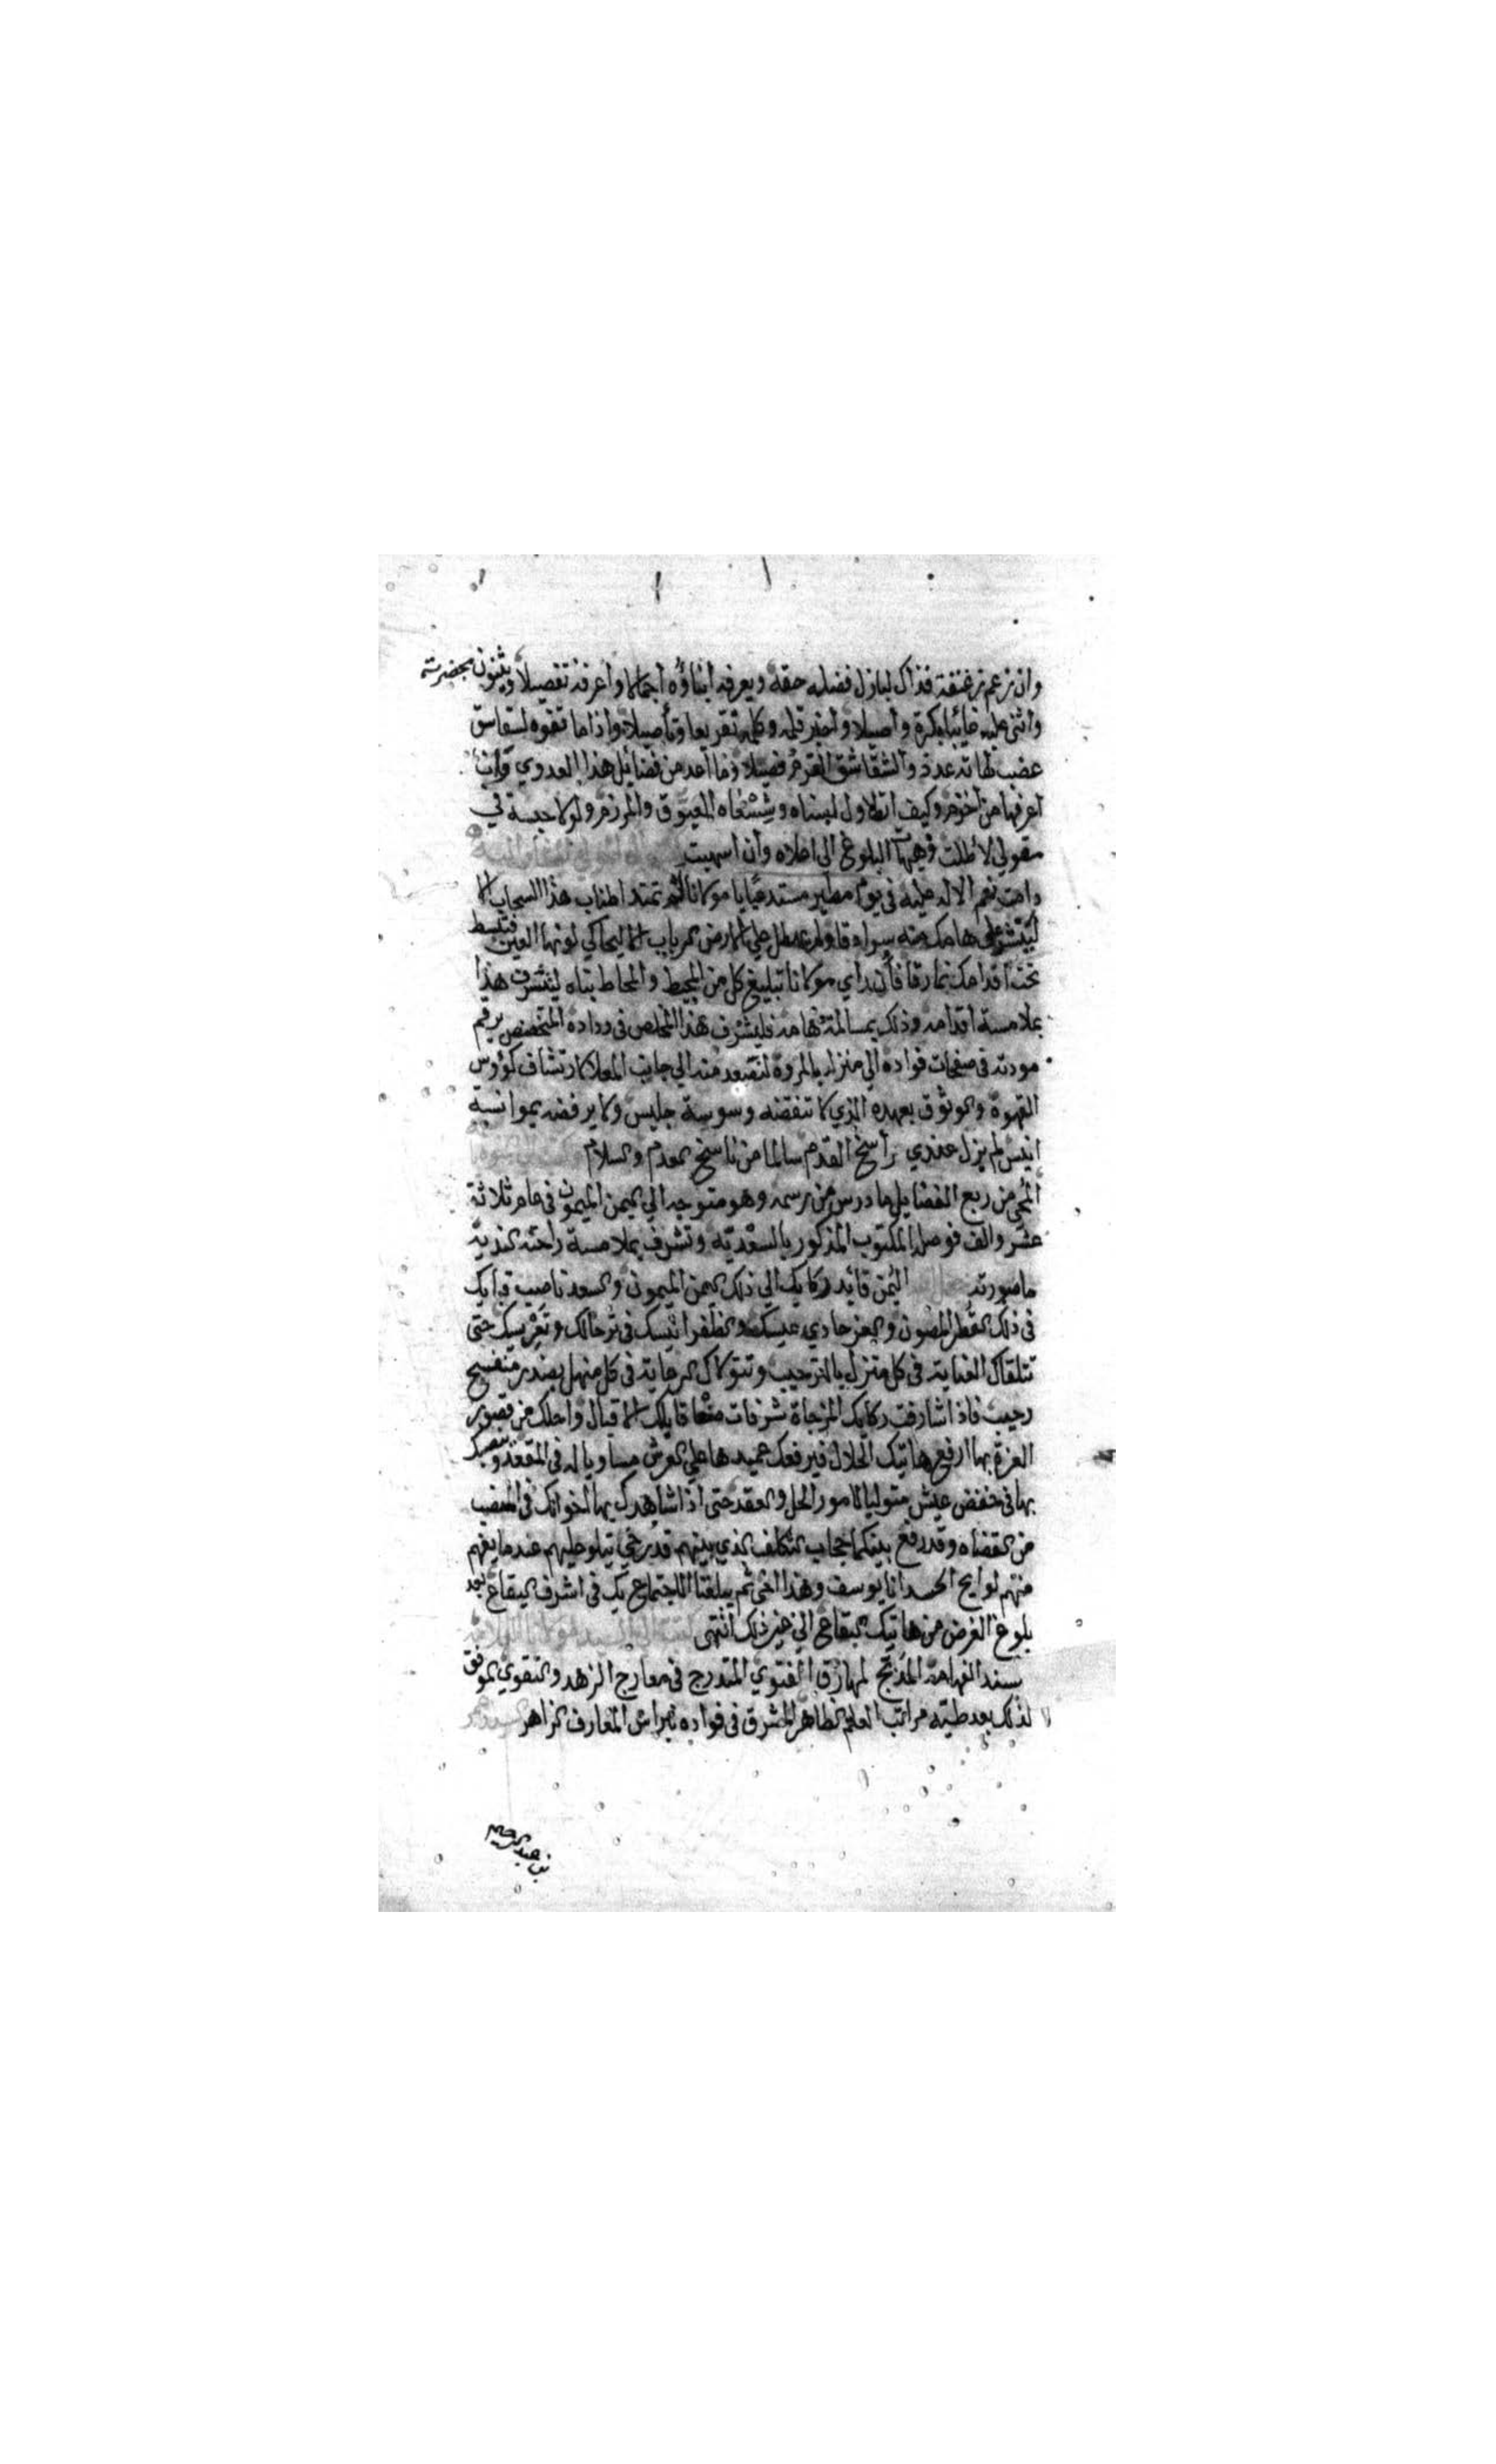 وان زعم زعنفة فذاك لبازل فضله حقه ويعرفه ابناؤه اجمالا واعرفه تفصيلا ويثنون بحضرته
واثنى عليه غائبا بكرة واصيلا واخبر قلمه وكلمه تفريعا وتأصيلا واذا ما تفوه لشقاشق
غضب لهاته غدة والشقاشق القرم فصيلا وما اعد من فضائل هذا العدوي وانا
اعرفها من اخزم وكيف اتطاول لسناه وشسعاه العيوق والمرزم ولولا حبسة في
مقولي لاطلت وهيهات البلوغ الى اعلاه وان اسهبت
دامت نعم الاله عليه في يوم مطير مستدعيا يا مولانا لم تمتد اطناب هذا السحاب الا
لينتشر على هامك منه سرادقا ولم تهطل على الارض الرباب الا ليحاكي لونها العين فتبسط
تحت اقدامك نمارقا فان رأي مولانا تبليغ كل من المحيط والمحاط بناه ليتشرف هذا
بملامسة اقدامه وذلك بمسالمة هامه فليشرف هذا المخلص في وداده المتخصص برقم
مودته في صفحات فواده الى منزله بالمروة لنصعد منه الى جانب المعلا لارتشاف كؤوس
القهوة والوثوق بعهده الذي لا تنقضه وسوسة جليس ولا يرفضه بموانسة
انيس لم يزل عندي راسخ القدم سالما من ناسخ العدم والسلام
المحي من ربع الفضايل ما درس من رسمه وهو متوجه الى اليمن الميمون في عام ثلاثة
عشر والف فوصله المكتوب المذكور بالسعدية وتشرف بملامسة راحته الندية
ما صورته اليمن قائد ركابك الى ذلك اليمن الميمون والسعد ناصب قبابك
في ذلك القطر المصون والعز حادي عيسك والظفر انيسك في ترحالك وتعريسك حتى
تتلقاك العناية في كل منزل بالترحيب وتتولاك الرعاية في كل منهل بصدر منفسح
رحيب فاذا شارفت ركابك المزجاة شرفات صنعا قابلك الاقبال واحلك من قصور
العزة بها ارفع هاتيك الحلال فيرفعك عميدها على العرش مساويا له في المقعد
بها في خفض عيش متوليا لامور الحل والعقد حتى اذا شاهدك بها اخوانك في المنصب
من القضاه وقد رفع بينكما حجاب التكلف الذي بينهم قد رخي تتلو عليهم عندما يفهم
منهم لوايح الحسد انا يوسف وهذا اخي ثم يبلغنا الاجتماع بك في اشرف البقاع بعد
بلوغ الغرض من هاتيك البقاع الى غير ذلك انتهى
سند الفهامة المدبج لمهارق الفتوي المتدرج في معارج الزهد والتقوي الموفق
لذلك بعد طيه مراتب العلم الظاهر المشرق في فواده نبراس المعارف الزاهر
بن عبد الرحيم